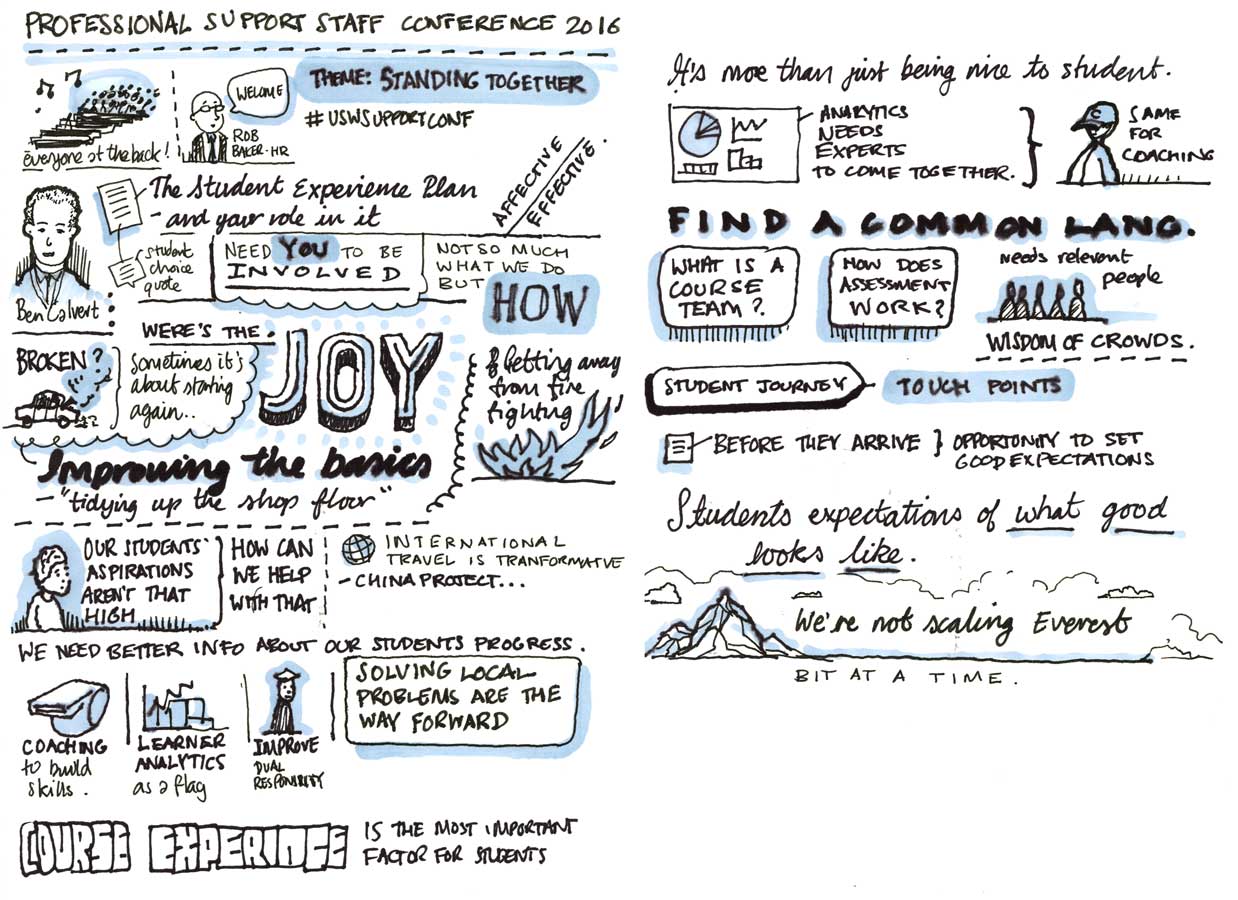 PROFESSIONAL SUPPORT STAFF CONFERENCE 2016
everyone at the back!
WELCOME
ROB
BAKER-HR
THEME: STANDING TOGETHER
#USWSUPPORTCONF
The Student Experience Plan
- and your role in it
AFFECTIVE
EFFECTIVE.
Ben Calvert
student
choice
quote
NEED YOU TO BE
INVOLVED
NOT SO MUCH
WHAT WE DO
BUT
HOW
WERE'S THE
JOY
BROKEN?
Sometimes it's
about starting
again..
& getting away
from fire
fighting
Improving the basics
- "tidying up the shop floor"
OUR STUDENTS'
ASPIRATIONS
AREN'T THAT
HIGH
HOW CAN
WE HELP
WITH THAT
INTERNATIONAL
TRAVEL IS TRANFORMATIVE
- CHINA PROJECT...
WE NEED BETTER INFO ABOUT OUR STUDENTS PROGRESS.
COACHING
to build
skills.
LEARNER
ANALYTICS
as a flag
IMPROVE
DUAL
SOLVING LOCAL
PROBLEMS ARE THE
WAY FORWARD
COURSE
IS THE MOST IMPORTANT
FACTOR FOR STUDENTS
It's more than just being nice to student.
ANALYTICS
NEEDS
EXPERTS
TO COME TOGETHER.
C
SAME
FOR
COACHING
FIND A COMMON LANG.
WHAT IS A
COURSE
TEAM?
HOW DOES
ASSESSMENT
WORK?
needs relevent
people
WISDOM OF CROWDS.
STUDENT JOURNEY
TOUCH POINTS
BEFORE THEY ARRIVE } OPPORTUNITY TO SET
GOOD EXPECTATIONS
Students expectations of what good
looks like.
We're not scaling Everest
BIT AT A TIME.